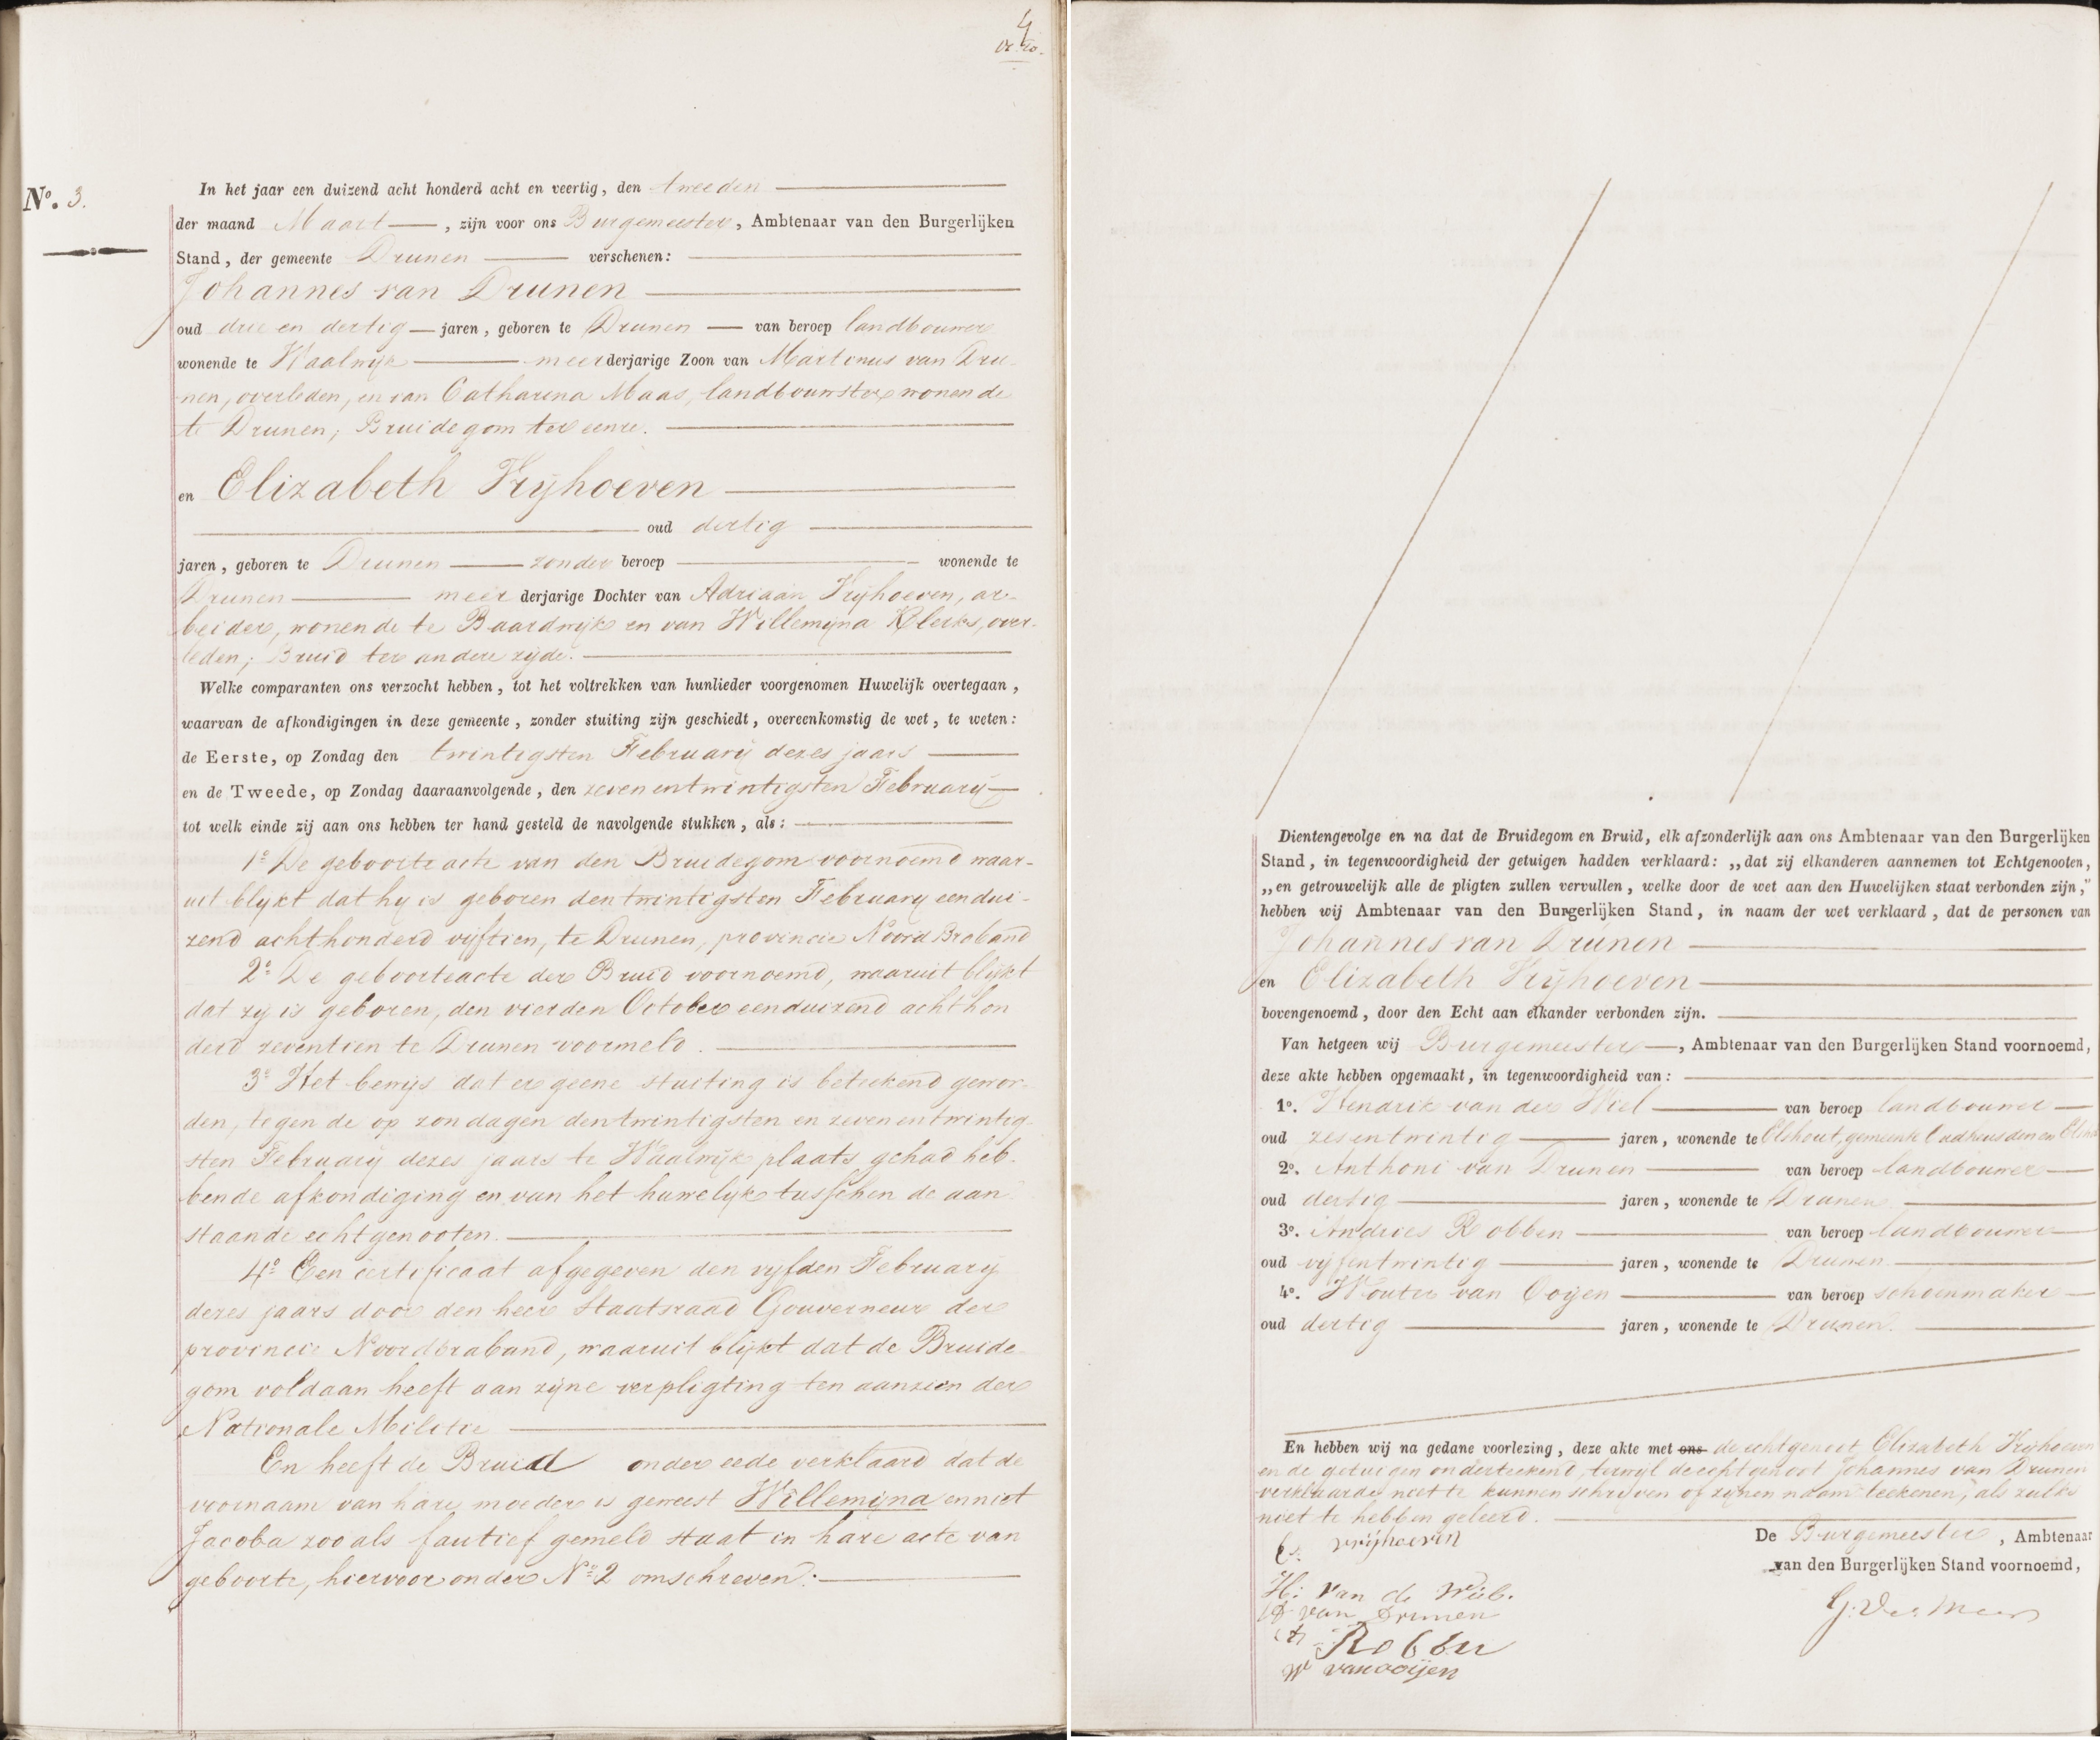 4
No. 3.
In het jaar een duizend acht honderd acht en veertig, den tweeden
der maand Maart, zijn voor ons Burgemeester, Ambtenaar van den Burgerlijken
Stand, der gemeente Drunen verschenen:
Johannes van Drunen
oud drie en dertig jaren, geboren te Drunen van beroep landbouwer
wonende te Waalwijk meerderjarige Zoon van Martinus van Dru-
nen, overleden, en van Catharina Maas, landbouwster wonende
te Drunen, Bruidegom ter eenre.
en Elizabeth Vrijhoeven
oud dertig
jaren, geboren te Drunen zonder beroep wonende te
Drunen meer derjarige Dochter van Adriaan Vrijhoeven, ar-
beider, wonende te Baardwijk en van Willemijna Klerks, over-
leden; Bruid ter andere zijde.
Welke comparanten ons verzocht hebben, tot het voltrekken van hunlieder voorgenomen Huwelijk overtegaan,
waarvan de afkondigingen in deze gemeente, zonder stuiting zijn geschiedt, overeenkomstig de wet, te weten:
de Eerste, op Zondag den twintigsten February dezes jaars
en de Tweede, op Zondag daaraanvolgende, den zevenentwintigsten February
tot welk einde zij aan ons hebben ter hand gesteld de navolgende stukken, als:
1o De geboorte acte van den Bruidegom voornoemd waar-
uit blykt dat hy is geboren den twintigsten February een dui-
zend achthonderd vyftien, te Drunen, provincie Noord Braband
2o De geboorteacte der Bruid voornoemd, waaruit blykt
dat zy is geboren, den vierden October eenduizend achthon
derd zeventien te Drunen voormeld.
3o Het bewys dat er geene stuiting is beteekend gewor-
den, tegen de op zondagen den twintigsten en zevenentwintig
sten February dezes jaars te Waalwijk plaats gehad heb-
bende afkondiging en van het huwelyk tusschen de aan
staande echtgenooten.
4o Een certificaat afgegeven den vyfden February
dezes jaars door den heer Staatsraad Gouverneur der
provincie Noordbraband, waaruit blijkt dat de Bruide
gom voldaan heeft aan zijne verpligting ten aanzien der
Nationale Militie
En heeft de Bruid onder eede verklaard dat de
voornaam van hare moeder is geweest Willemijna en niet
Jacoba zooals fautief gemeld staat in hare acte van
geboorte, hiervoor onder No 2 omschreven.
Dientengevolge en na dat de Bruidegom en Bruid, elk afzonderlijk aan ons Ambtenaar van den Burgerlijken
Stand, in tegenwoordigheid der getuigen hadden verklaard: „dat zij elkanderen aannemen tot Echtgenooten,
„en getrouwelijk alle de pligten zullen vervullen, welke door de wet aan den Huwelijken staat verbonden zijn,"
hebben wij Ambtenaar van den Burgerlijken Stand, in naam der wet verklaard, dat de personen van
Johannes van Drunen
en Elizabeth Vrijhoeven
bovengenoemd, door den Echt aan elkander verbonden zijn.
Van hetgeen wij Burgemeester, Ambtenaar van den Burgerlijken Stand voornoemd,
deze akte hebben opgemaakt, in tegenwoordigheid van:
1o. Hendrik van der Wiel van beroep landbouwer
oud zesentwintig jaren, wonende te Elshout, gemeente Oudheusden en
2o. Anthoni van Drunen van beroep landbouwer
oud dertig jaren, wonende te Drunen
3o. Andries Robben van beroep landbouwer
oud vyfentwintig jaren, wonende te Drunen
4o. Wouter van Ooijen van beroep schoenmaker
oud dertig jaren, wonende te Drunen.
En hebben wij na gedane voorlezing, deze akte met ons de echtgenoot Elizabeth Vrijhoeven
en de getuigen onderteekend, terwijl de echtgenoot Johannes van Drunen
verklaarde niet te kunnen schrijven of zijnen naam teekenen, als zulks
niet te hebben geleerd.
E. vrijhoeven
De Burgemeester, Ambtenaar
van den Burgerlijken Stand voornoemd,
H: van de Wiel.
A van Drunen
A Robben
W van ooijen